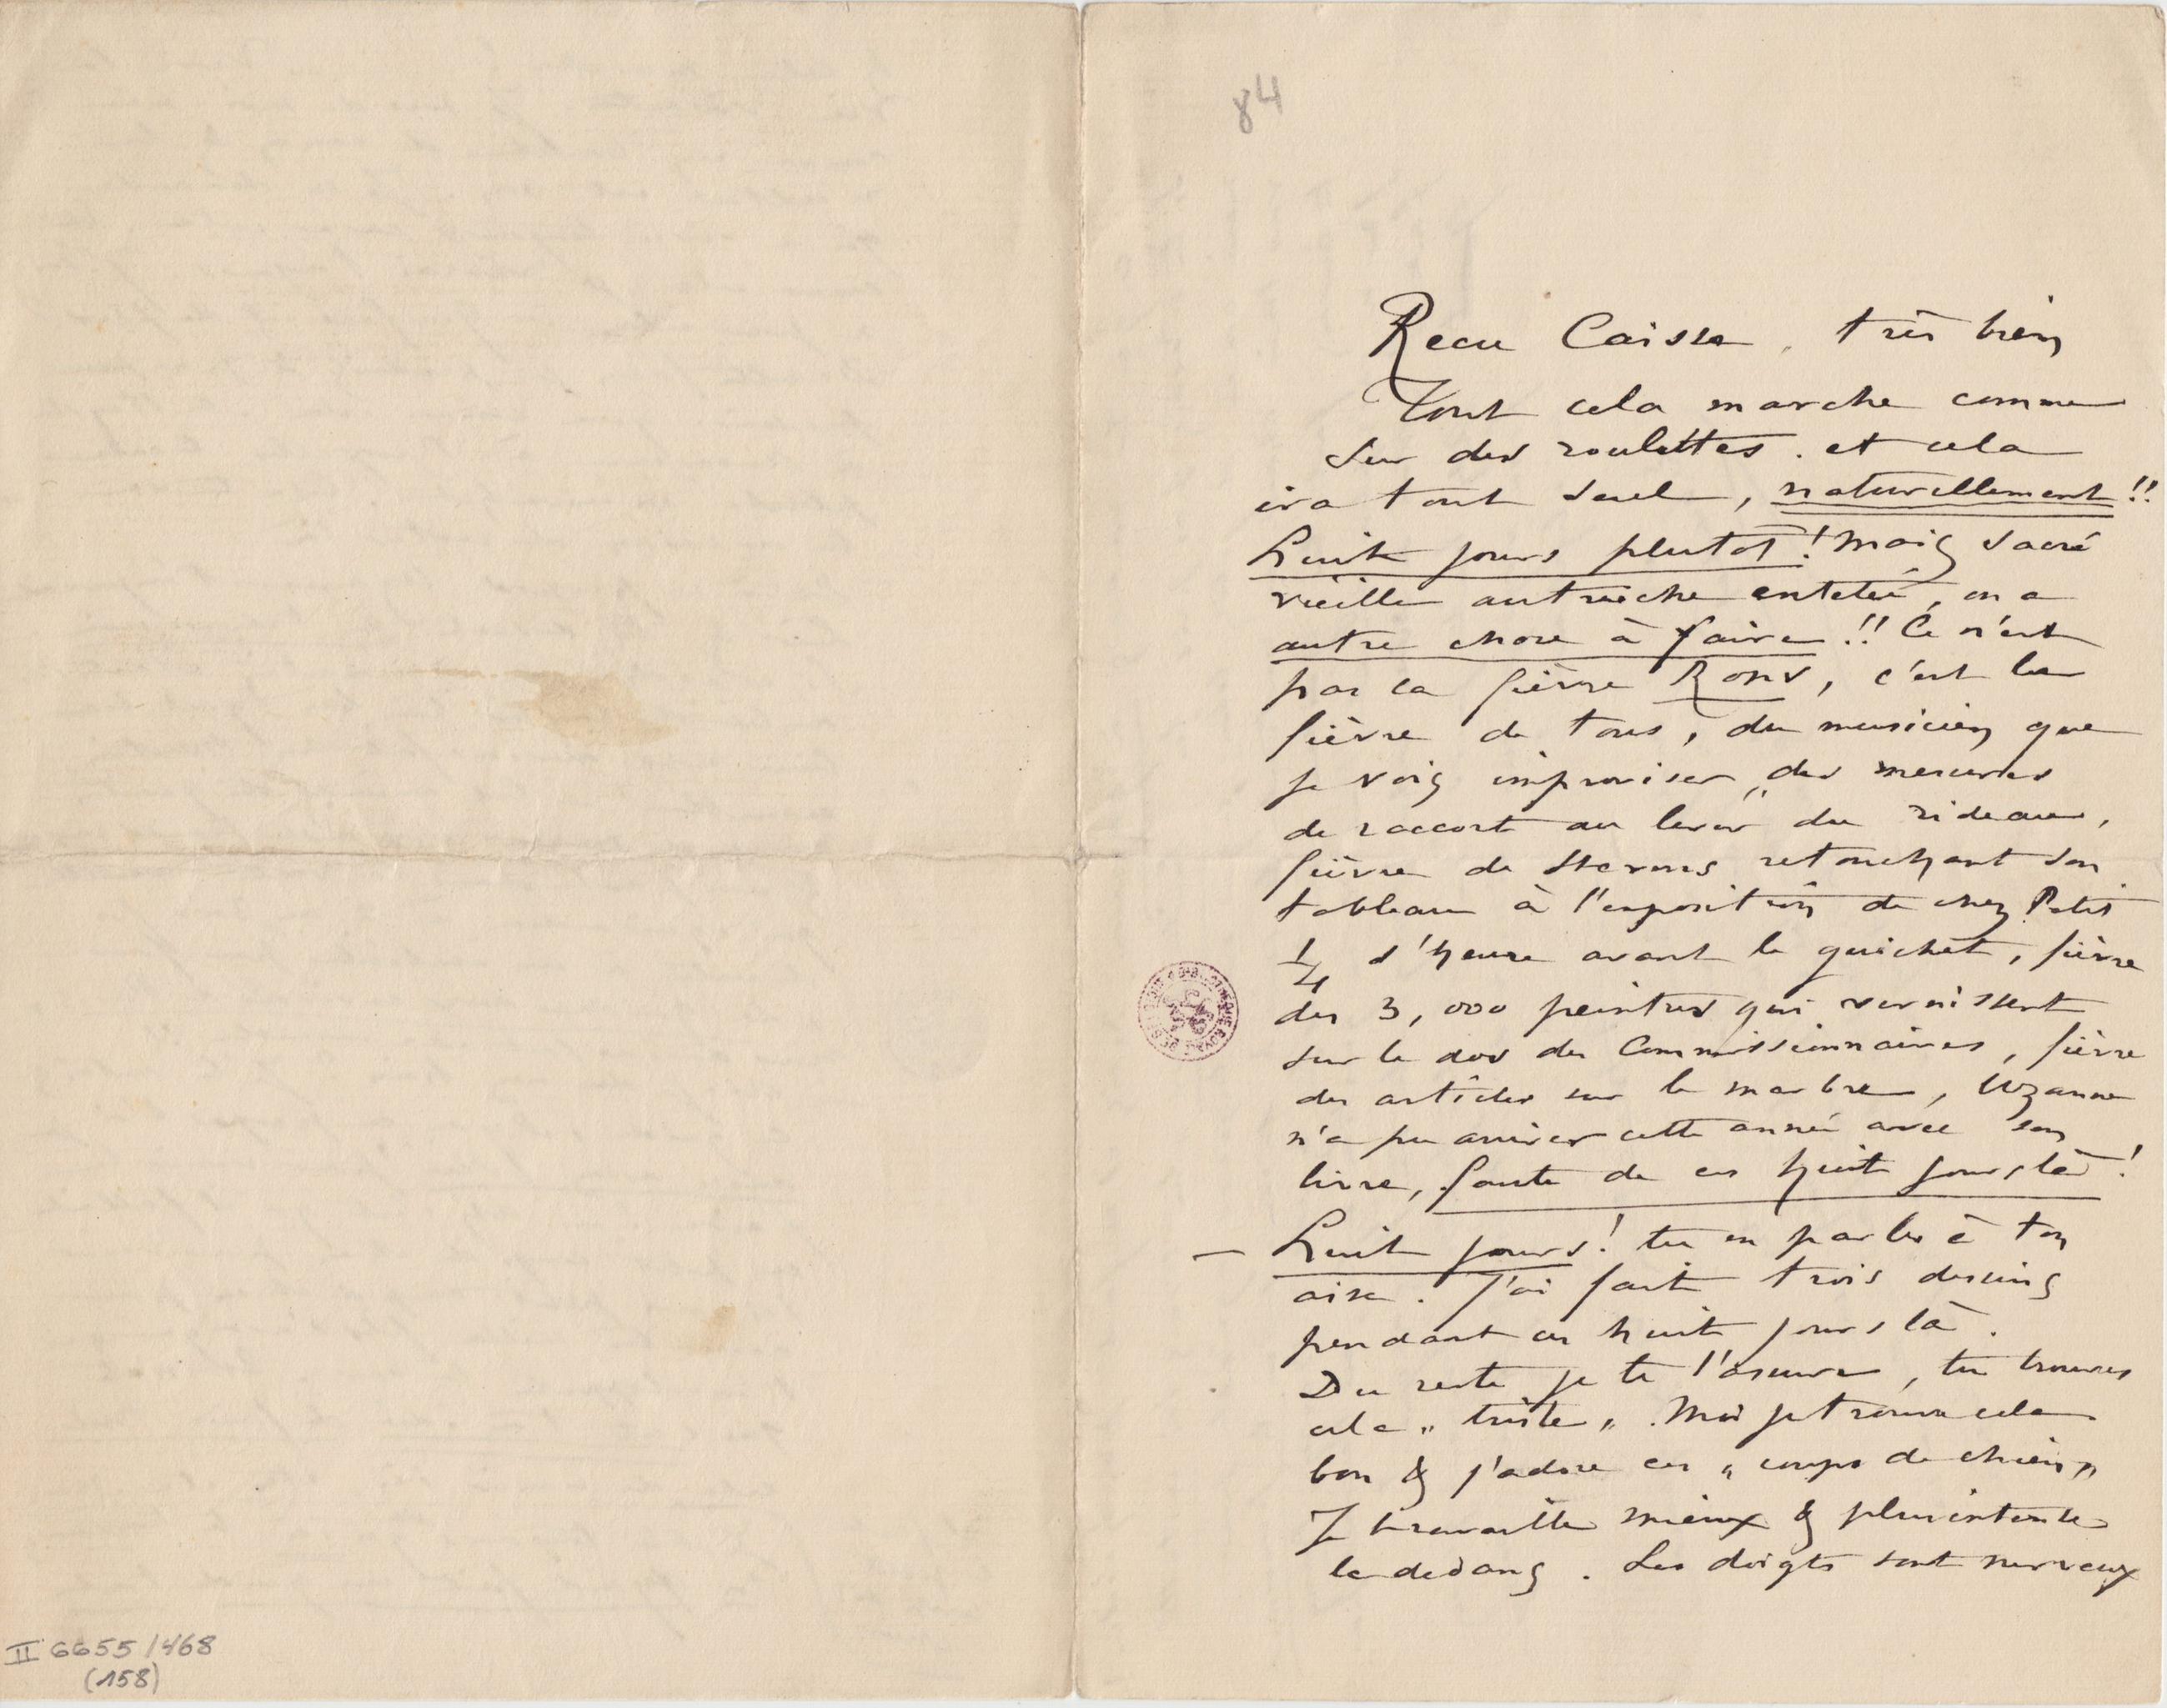 84
Recu Caisse, très bien
Tout cela marche comme
sur des roulettes. et cela
ira tout seul, naturellement !!
Huit jours plutot ! Mais sacré
vieille autruche entetée, on a
autre chose à faire !! Ce n'est
pas la fièvre Rops, c'est la
fièvre de tous, du musicien que
je vois improviser des mesures
de raccort au lever du rideau,
fièvre de Stevens retouchant son
tableau à l'exposition de chez Petit
1/4 d'heure avant le guichet, fièvre
des 3,000 peintres qui vernissent
sur le dos des Commissionnaires, fièvre
des articles sur le marbre, Uzanne
n'a pu arriver cette année avec son
livre, faute de ces huit jours là !
— Huit jours ! tu en parles à ton
aise. J'ai fait trois dessins
pendant ces huit jours là.
Du reste je te l'assure, tu trouves
cela „ triste „. Moi je trouve cela
bon & j'adore ces „ coups de chien „
Je travaille mieux & plus intense
le dedans. Les doigts sont nerveux
II 6655/468
(158)